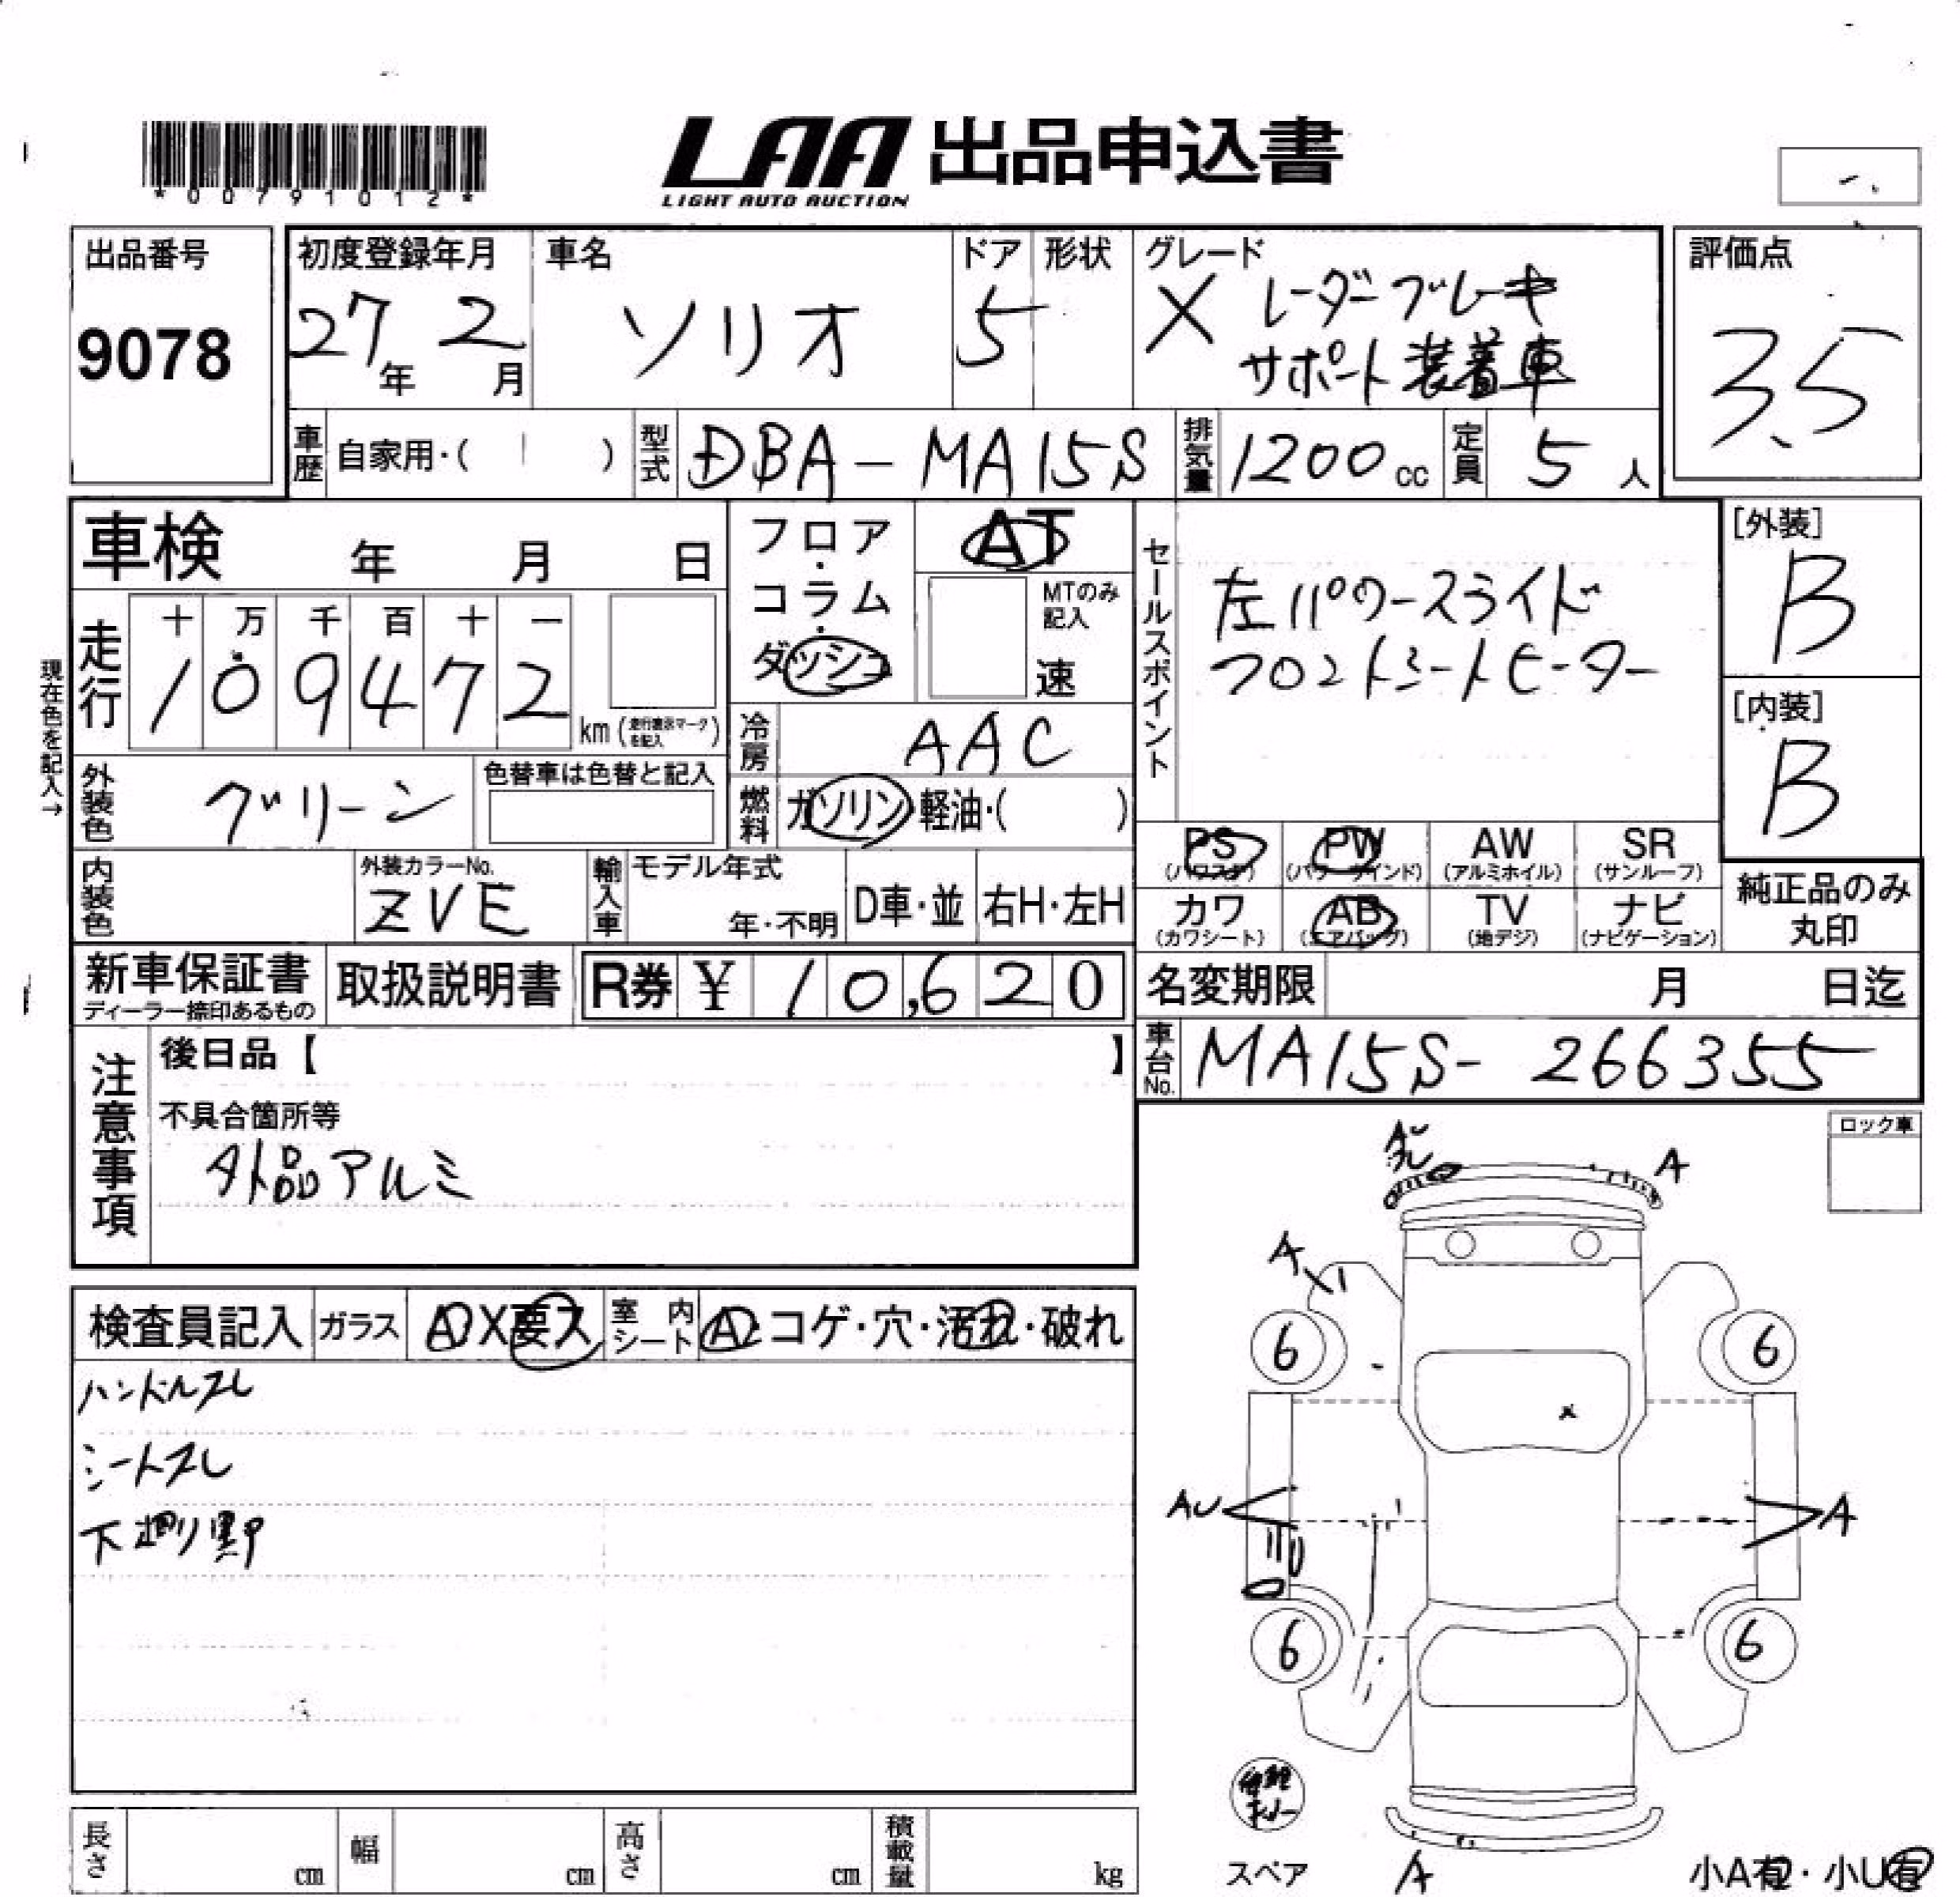 *00791012*
LAA 出品申込書
LIGHT AUTO AUCTION
出品番号
9078
初度登録年月
27年 2月
車名
ソリオ
ドア
5
形状
グレード
X レーダーブレーキ
サポート装着車
評価点
3.5
車歴 自家用・( )
型式 DBA-MA15S
排気量 1200cc
定員 5人
車検 年 月 日
フロア・コラム・ダッシュ
AT
MTのみ記入
速
セールスポイント
左パワースライド
フロントシートヒーター
[外装]
B
[内装]
B
現在色を記入→
走行
十 万 千 百 十 一
1 0 9 4 7 2
km(走行表示マークを記入)
冷房 AAC
外装色 グリーン
色替車は色替と記入
燃料 ガソリン・軽油・( )
PS (パワステ)
PW (パワーウインド)
AW (アルミホイル)
SR (サンルーフ)
カワ (カワシート)
AB (エアバッグ)
TV (地デジ)
ナビ (ナビゲーション)
純正品のみ
丸印
内装色
外装カラーNo.
ZVE
輸入車 モデル年式
年・不明
D車・並
右H・左H
新車保証書
ディーラー捺印あるもの
取扱説明書
R券 ¥ 10,620
名変期限 月 日迄
車台No. MA15S-266355
注意事項
後日品【 】
不具合箇所等
外品アルミ
ロック車
検査員記入
ガラス A X 要ス
室内シート A・コゲ・穴・汚れ・破れ
ハンドルスレ
シートスレ
下廻り錆
A
A
6
6
AU
A
6
6
A
スペア
小A有・小U有
長さ cm
幅 cm
高さ cm
積載量 kg